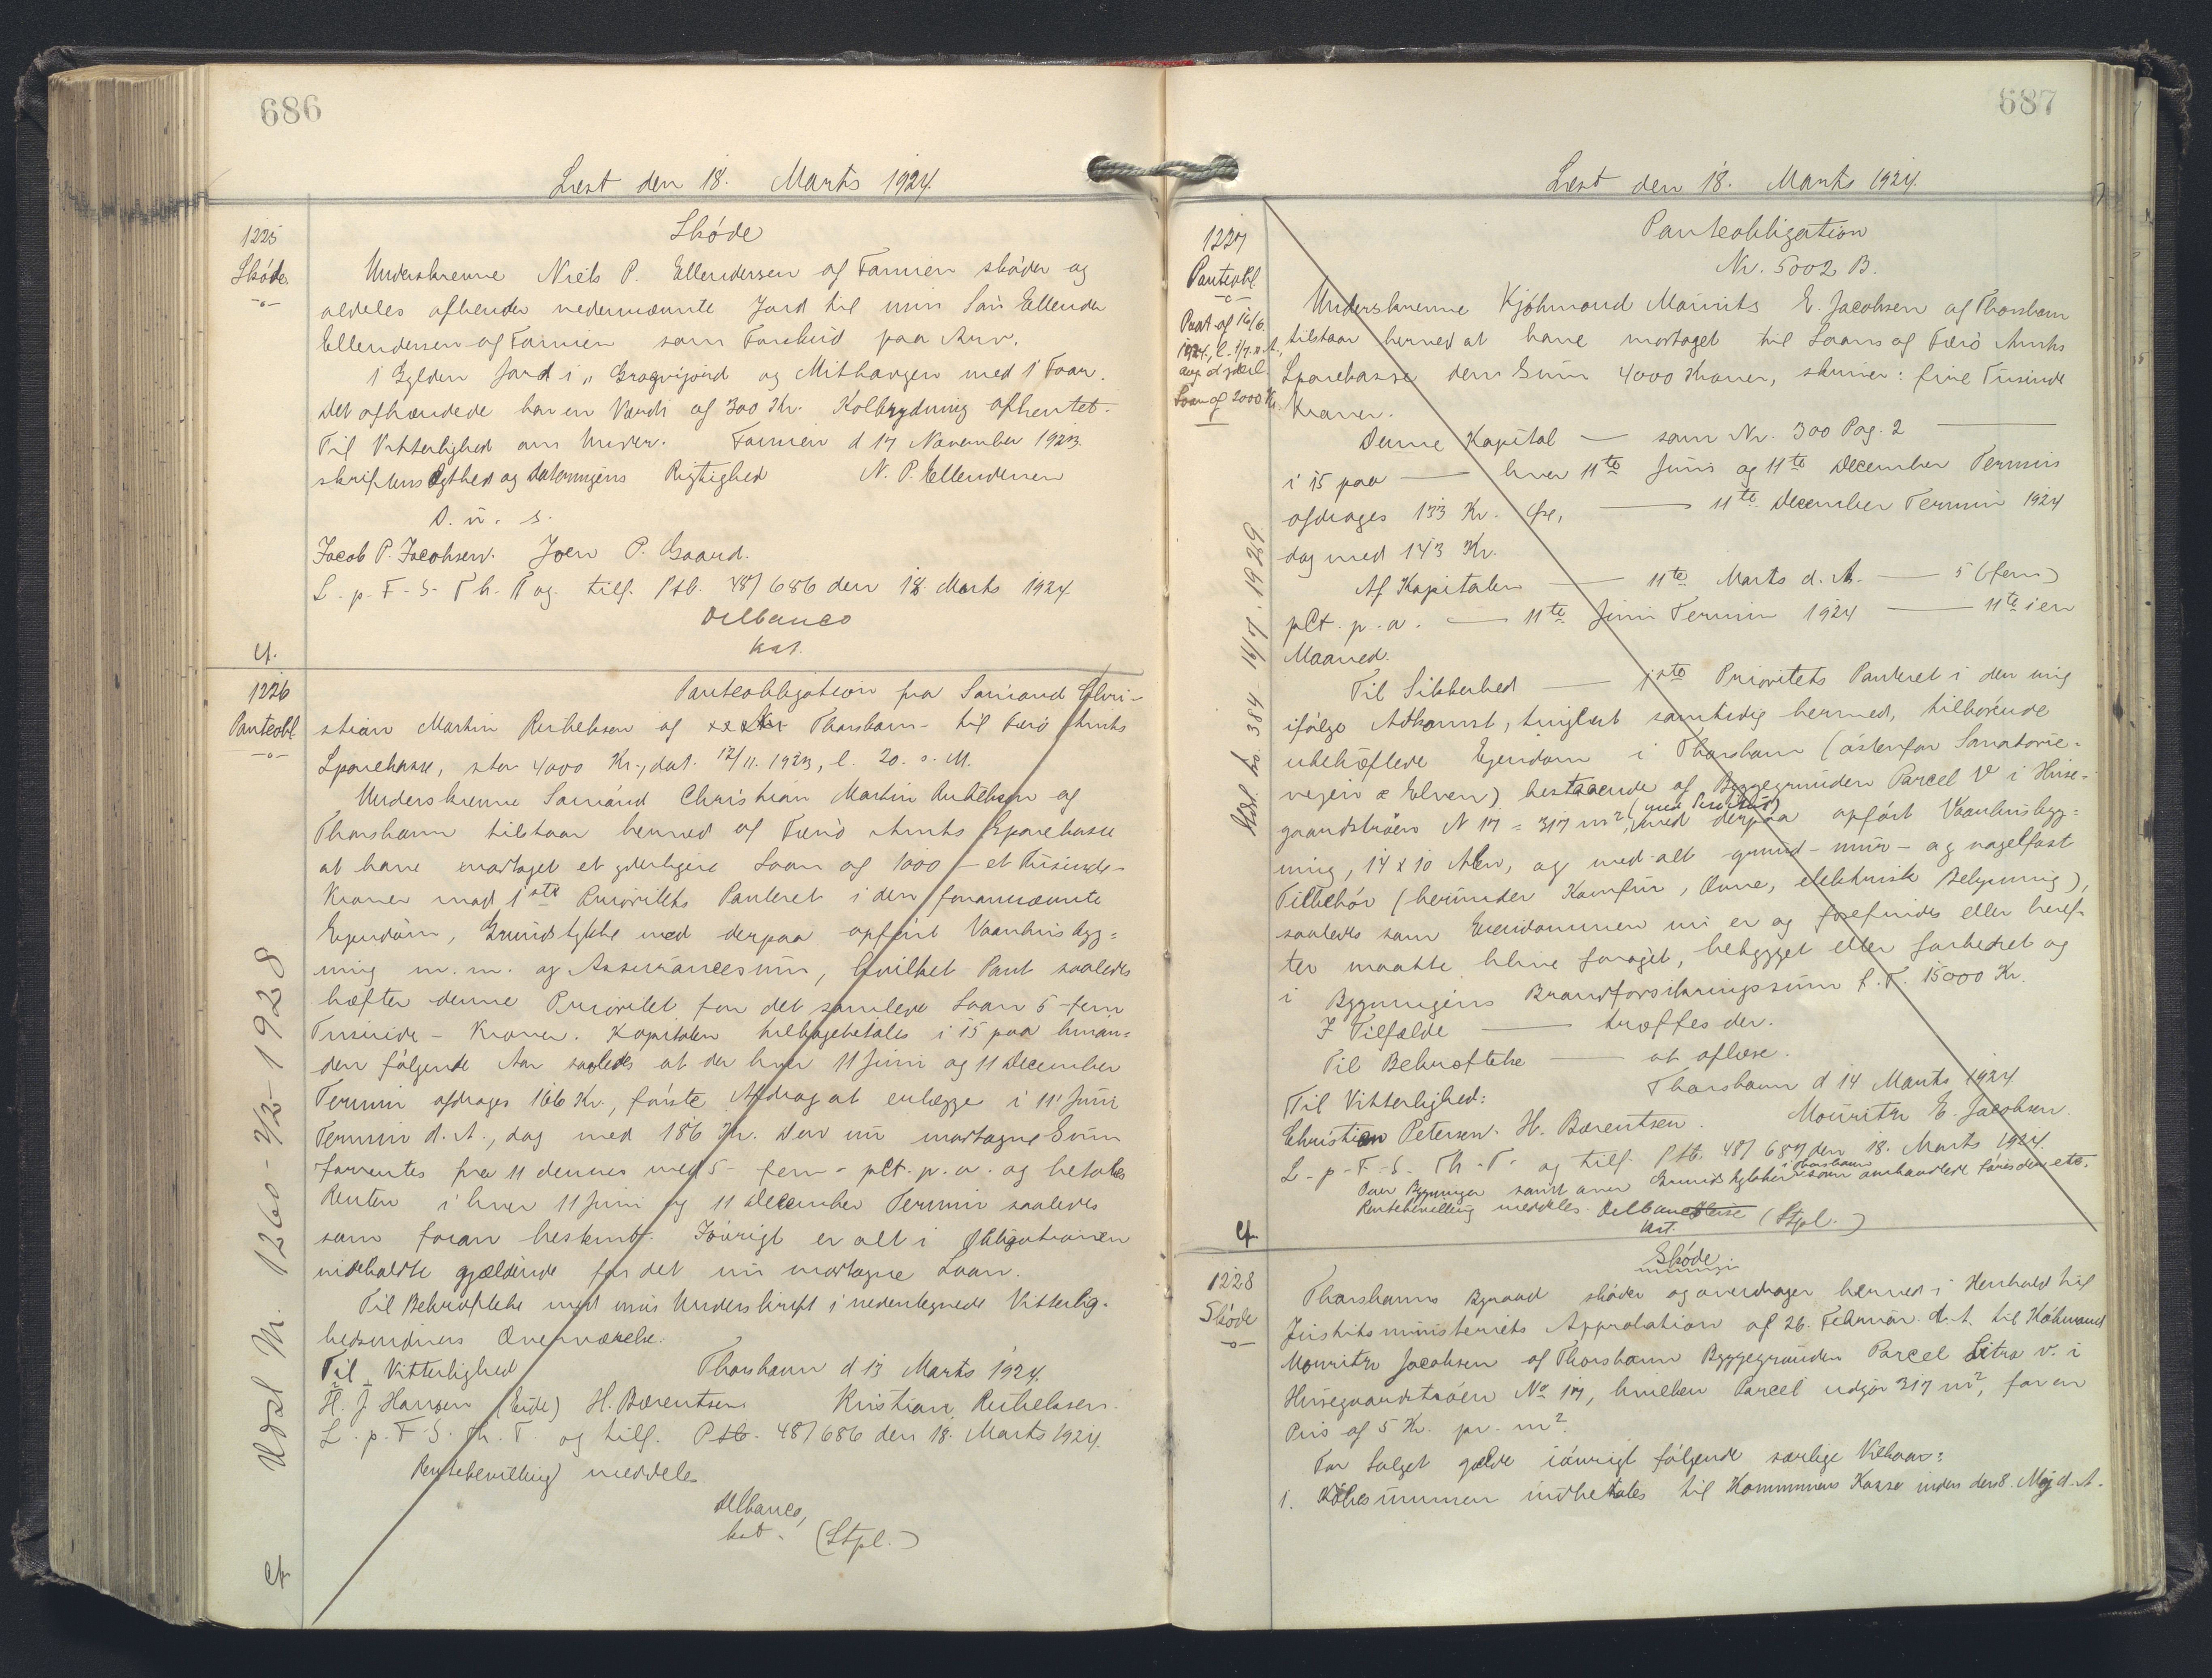 686
Læst den 18. Marts 1924.
1225
Skøde
Skóde
Underskrevne Niels P. Ellendersen af Famien skóder og
aldeles afhender nedennævnte Jord til min Sön Ellender
Ellendersen af Famien som Forskud paa Arv.
1 Gylden Jord i "                og              med 1 Faar.
Det afhændede har en Værdi af 300 Kr. Kolbrydning afhentet.
Til Vitterlighed om Under- Famien d 17 November 1923.
skriftens Ægthed og Dateringens Rigtighed N. P. Ellendersen
D. u. s.
Jacob P. Jacobsen. Joen P. Gaard.
L. p. F. S. Th. T. og tilf. Ptb. 48/686 den 18 Marts 1924
Delbanco
kst.
cf.
1226
Panteobl
Panteobligation fra Sömand Chri-
stian Martin Rubeksen af Thorshavn - til Færö Amts
Sparekasse, stor 4000 Kr., dat. 12/11. 1923, l. 20. s. M.
Underskrevne Sömand Christian Martin Rubeksen af
Thorshavn tilstaar herved af Færö Amts Sparekasse
at have modtaget et yderligere Laan af 1000 - et Tusinde -
Kroner mod 1ste Prioritets Panteret i den forannævnte
Ejendom, Grundstykke med derpaa opfört Vaanhusbyg=
ning m. m. og Assurancesum, hvilket Pant saaledes
hæfter denne Prioritet for det samlede Laan 5 - fem
Tusinde - Kroner. Kapitalen tilbagebetales i 15 paa hinan=
den fölgende Aar saaledes at der hver 11 Juni og 11 December
Termin afdrages 166 Kr., förste Afdrag at erlægge i 11' Juni
Termin d. A., dog med 186 Kr. Den nu modtagne Sum
forrentes fra 11 dennes med 5 - fem - pCt. p. a. og betales
Renten i hver 11 Juni og 11 December Termin saaledes
som foran beskrevet. Iövrigt er alt i Obligationen
indeholdte gjældende for det nu modtagne Laan.
Til Bekræftelse med min Underskrift i nedentegnede Vitterlig-
hedsvidners Overværelse.
Til Vitterlighed Thorshavn d 13 Marts 1924.
H. J Hansen (Eide) H. Bærentsen Kristian Rubeksen.
L. p. F. S. Th. T. og tilf. Ptb. 48/686 den 18. Marts 1924.
Rentebevilling meddeles
Delbanco,
kst. (Stpl.)
Udsl M. 1260 - 2/3 - 1928
cf
687
Læst den 18. Marts 1924.
1227
Panteobl.
Paat. af 16/6.
1924, l. 1/7. s. A.,
ang. et yderl.
Laan af 2000 Kr.
Panteobligation
Nr. 5002 B.
Underskrevne Kjöbmand Mouritz E. Jacobsen af Thorshavn
tilstaar herved at have modtaget til Laans af Færö Amts
Sparekasse den Sum 4000 Kroner, skriver: fire Tusinde
Kroner.
Denne Kapital — som Nr. 300 Pag. 2 —
i 15 paa — hver 11te Juni og 11te December Termin
afdrages 133 Kr. Öre, — 11te December Termin 1924
dog med 143 Kr.
Af Kapitalen — 11te Marts d. A. — 5 (fem)
pCt. p. a. — 11te Juni Termin 1924 — 11te i en
Maaned.
Til Sikkerhed — 1ste Prioritets Panteret i den mig
ifölge Adkomst, tinglæst samtidig hermed, tilhörende
ubehæftede Ejendom i Thorshavn (östenfor Sanatorie-
vejen & Elven) bestaaende af Byggegrunden Parcel V i Huse-
gaardströen N 17 = 317 m², med derpaa opfört Vaanhusbyg=
ning, 14 x 10 Alen, og med alt grund- mur- og nagelfast
Tilbehör (herunder Komfur, Ovne, elektrisk Belysning),
saaledes som Ejendommen nu er og forefindes eller heref-
ter maatte blive foröget, bebygget eller forbedret og
i Bygningens Brandforsikringssum f. T. 15000 Kr.
I Tilfælde — træffes der.
Til Bekræftelse — at aflæse.
Thorshavn d 14 Marts 1924
Til Vitterlighed: Mouritz E. Jacobsen.
Christian Petersen. H. Bærentsen.
L. p. F. S. Th. T. og tilf. Ptb. 48/687 den 18. Marts 1924.
Over Bygninger samt over Grundstykker i Thorshavn som omhandlede föres den etc.
Rentebevilling meddeles. Delbanco (Stpl.)
kst.
cf.
Udsl. Lo. 384 - 14/7. 1929
1228
Skóde
Skóde
Thorshavns Byraad skóder og overdrager herved i Henhold til
Justitsministeriets Approbation af 26. Februar d. A. til Köbmand
Mouritz Jacobsen af Thorshavn Byggegrunden Parcel Litra V. i
Husegaardströen No 17, hvilken Parcel udgör 317 m², for en
Pris af 5 Kr. pr. m².
For Salget gælde iövrigt fölgende særlige Vilkaar:
1. Köbesummen indbetales til Kommunens Kasse inden den 8. Maj d. A.